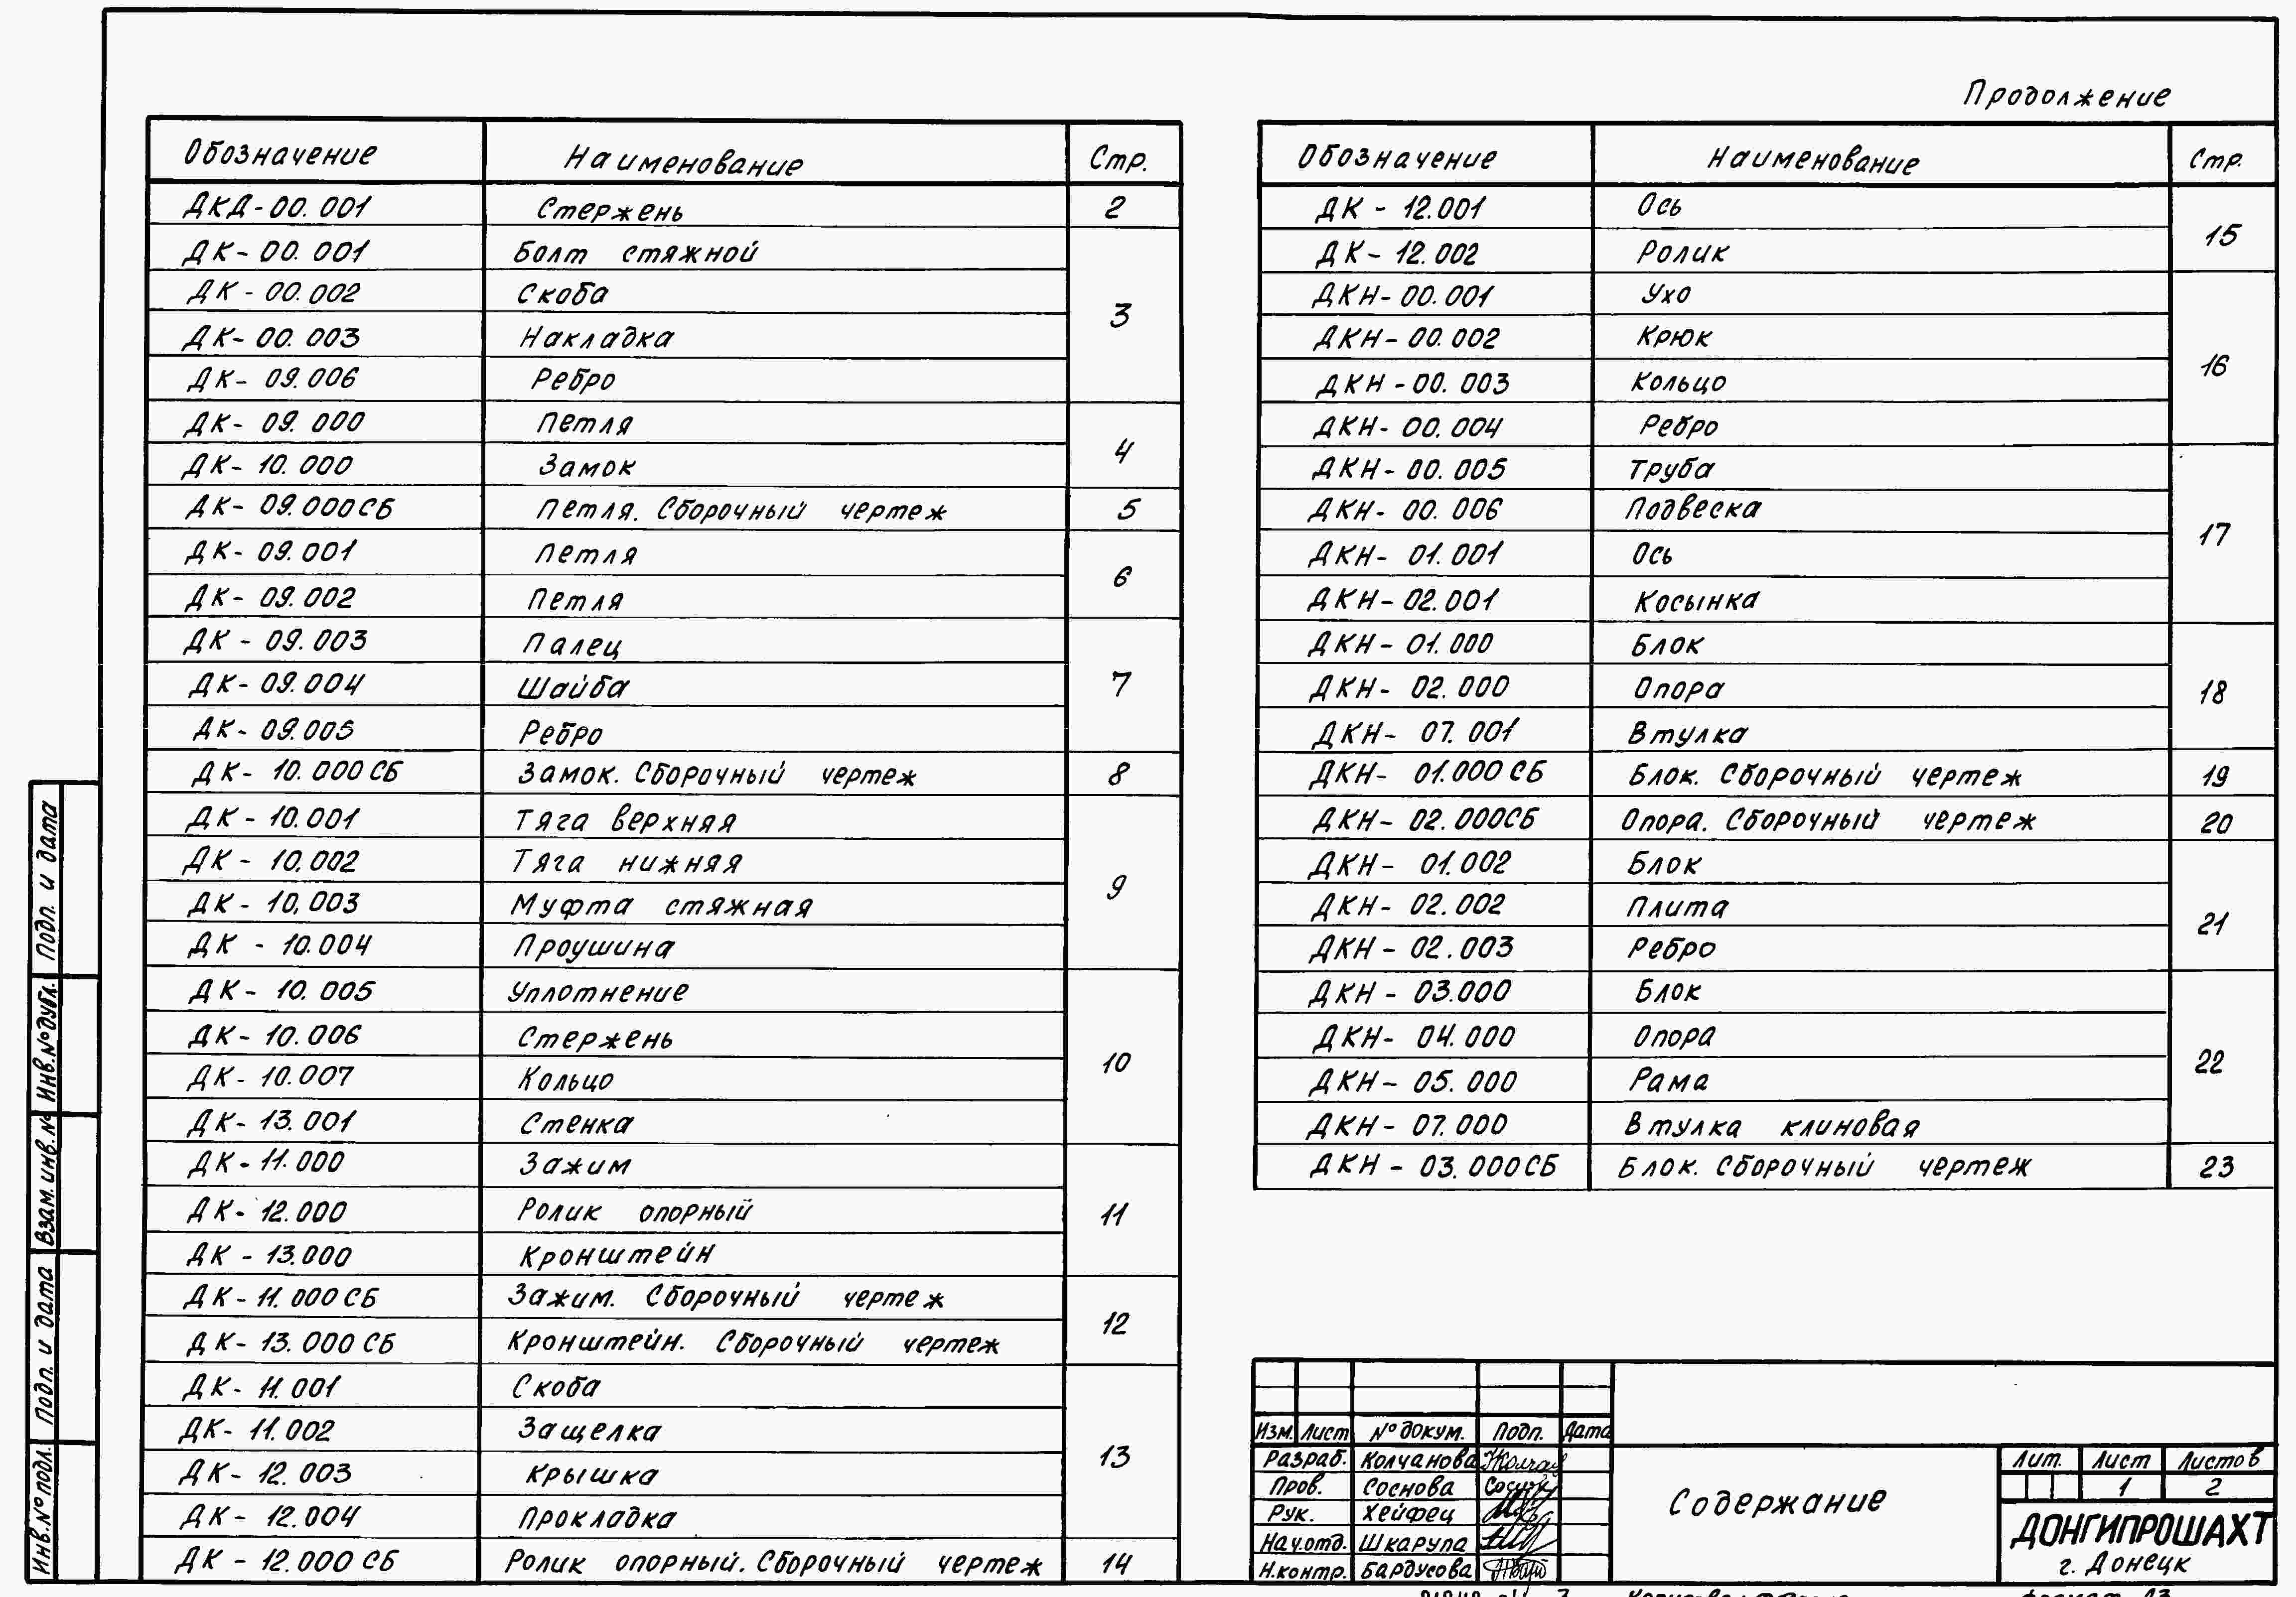 Продолжение
Обозначение Наименование Стр.
ДКД-00.001 Стержень 2
ДК-00.001 Болт стяжной
ДК-00.002 Скоба
3
ДК-00.003 Накладка
ДК-09.006 Ребро
ДК-09.000 Петля
4
ДК-10.000 Замок
ДК-09.000СБ Петля. Сборочный чертеж 5
ДК-09.001 Петля
6
ДК-09.002 Петля
ДК-09.003 Палец
ДК-09.004 Шайба 7
ДК-09.005 Ребро
ДК-10.000СБ Замок. Сборочный чертеж 8
ДК-10.001 Тяга верхняя
ДК-10.002 Тяга нижняя
9
ДК-10.003 Муфта стяжная
ДК-10.004 Проушина
ДК-10.005 Уплотнение
ДК-10.006 Стержень
10
ДК-10.007 Кольцо
ДК-13.001 Стенка
ДК-11.000 Зажим
ДК-12.000 Ролик опорный 11
ДК-13.000 Кронштейн
ДК-11.000СБ Зажим. Сборочный чертеж
12
ДК-13.000СБ Кронштейн. Сборочный чертеж
ДК-11.001 Скоба
ДК-11.002 Защелка
13
ДК-12.003 Крышка
ДК-12.004 Прокладка
ДК-12.000СБ Ролик опорный. Сборочный чертеж 14
Обозначение Наименование Стр.
ДК-12.001 Ось
15
ДК-12.002 Ролик
ДКН-00.001 Ухо
ДКН-00.002 Крюк
16
ДКН-00.003 Кольцо
ДКН-00.004 Ребро
ДКН-00.005 Труба
ДКН-00.006 Подвеска
17
ДКН-01.001 Ось
ДКН-02.001 Косынка
ДКН-01.000 Блок
ДКН-02.000 Опора 18
ДКН-07.001 Втулка
ДКН-01.000СБ Блок. Сборочный чертеж 19
ДКН-02.000СБ Опора. Сборочный чертеж 20
ДКН-01.002 Блок
ДКН-02.002 Плита 21
ДКН-02.003 Ребро
ДКН-03.000 Блок
ДКН-04.000 Опора
22
ДКН-05.000 Рама
ДКН-07.000 Втулка клиновая
ДКН-03.000СБ Блок. Сборочный чертеж 23
Подп. и дата
Инв.№дубл.
Взам.инв.№
Подп. и дата
Инв.№подл.
Изм. Лист №докум. Подп. Дата
Разраб. Колчанова
Пров. Соснова
Рук. Хейфец
Нач.отд. Шкарупа
Н.контр. Бардусова
Содержание
Лит. Лист Листов
1 2
ДОНГИПРОШАХТ
г. Донецк